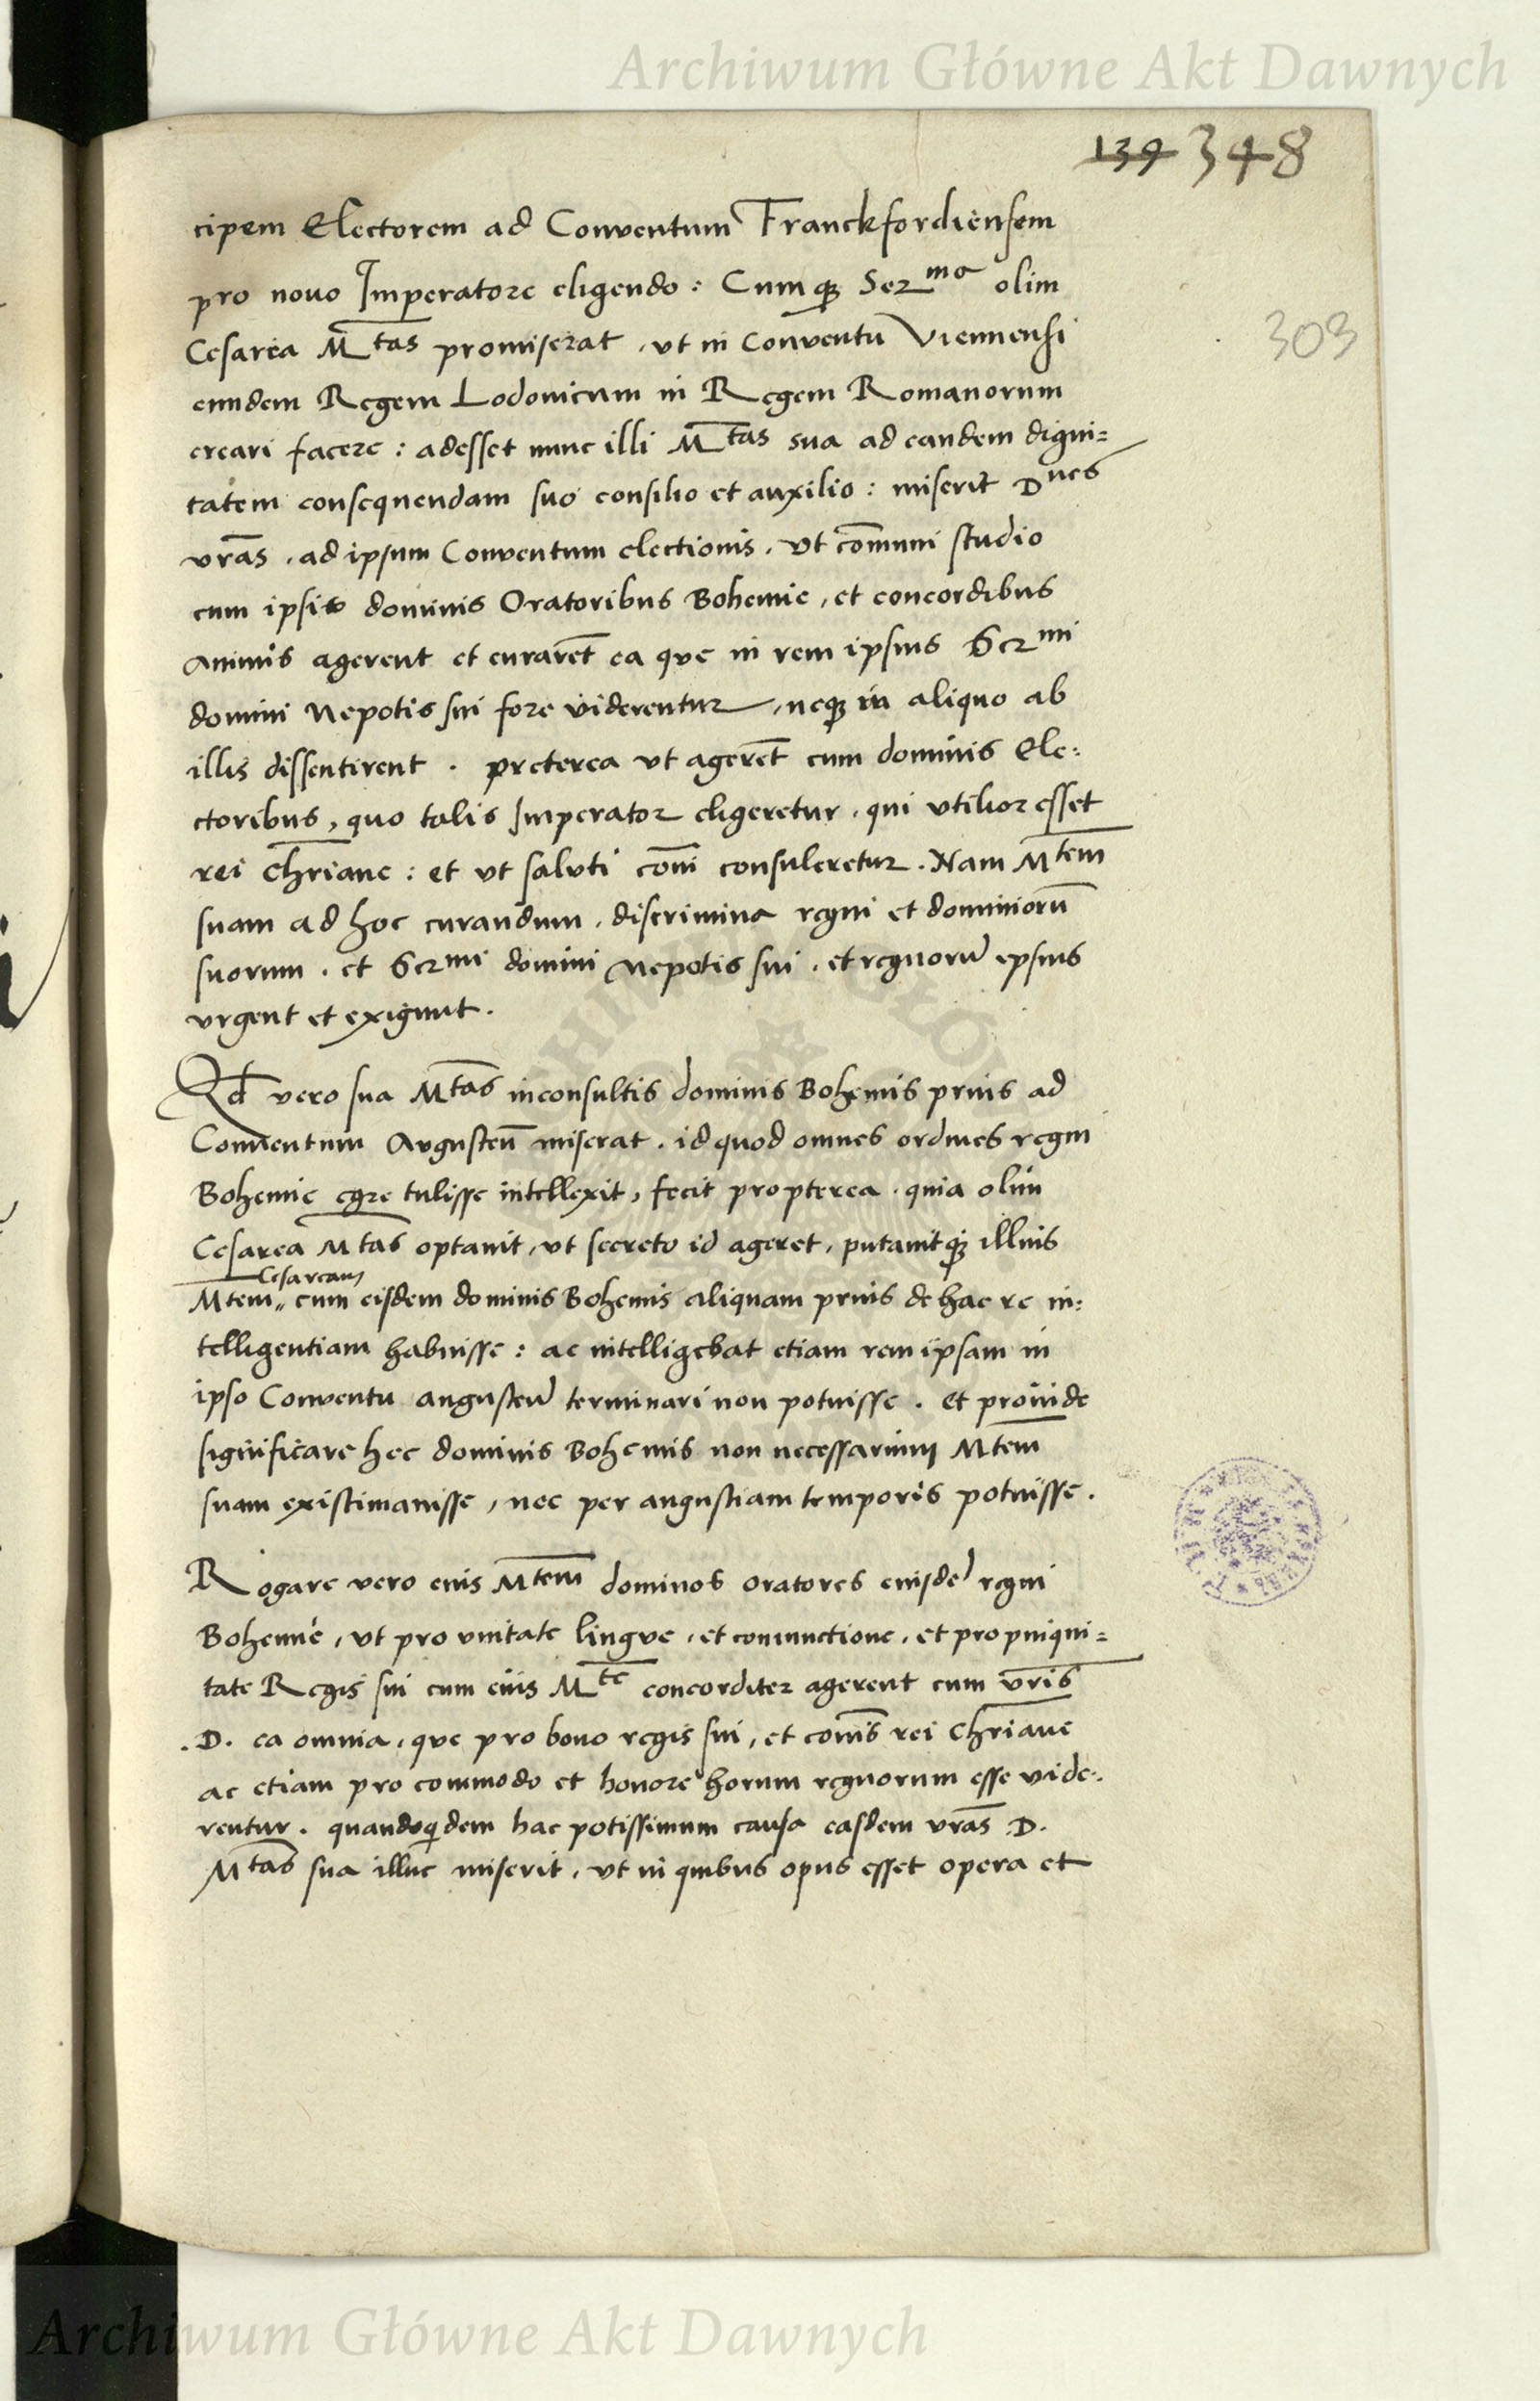 Archiwum Główne Akt Dawnych
139 348
303
cipem Electorem ad Conventum Franckfordiensem
pro nouo Imperatore eligendo : Cumq₃ Serma olim
Cesarea Mtas promiserat , vt in Conventu Viennensi
eundem Regem Lodovicum in Regem Romanorum
creari facere : adesset nunc illi Mtas sua ad eandem digni=
tatem consequendam suo consilio et auxilio : miserit Dnes
vr̄as , ad ipsum Conventum electionis , vt com̄uni studio
cum ipsis dominis Oratoribus Bohemie , et concordibus
animis agerent et curarēt ea que in rem ipsius Sermi
domini Nepotis sui fore viderentur , neq₃ in aliquo ab
illis dissentirent . preterea vt agerēt cum dominis Ele=
ctoribus , quo talis Imperator eligeretur , qui vtilior esset
rei Chr̄iane : et vt saluti com̄i consuleretur . Nam Mtem
suam ad hoc curandum , discrimina regni et dominiorū
suorum , et Sermi domini Nepotis sui , et regnorū ipsius
vrgent et exigunt .
Qd vero sua Mtas inconsultis dominis Bohemis prius ad
Conuentum Augusteū miserat , id quod omnes ordines regni
Bohemie egre tulisse intellexit , fecit propterea , quia olim
Cesarea Mtas optauit , vt secreto id ageret , putauitq₃ illius
Cesaream
Mtem cum eisdem dominis Bohemis aliquam prius de hac re in=
telligentiam habuisse : ac intelligebat etiam rem ipsam in
ipso Conventu augusteū terminari non potuisse . et proinde
significare hec dominis Bohemis non necessarium Mtem
suam existimauisse , nec per angustiam temporis potuisse .
Rogare vero eius Mtem dominos oratores eiusdē regni
Bohemie , vt pro vnitate lingue , et coniunctione , et propinqui=
tate Regis sui cum eius Mte concorditer agerent cum vr̄is
.D. ea omnia , que pro bono regis sui , et com̄is rei Chr̄iane
ac etiam pro commodo et honore horum regnorum esse vide=
rentur . quandoquidem hac potissimum causa easdem vr̄as D.
Mtas sua illuc miserit , vt in quibus opus esset opera et
Archiwum Główne Akt Dawnych